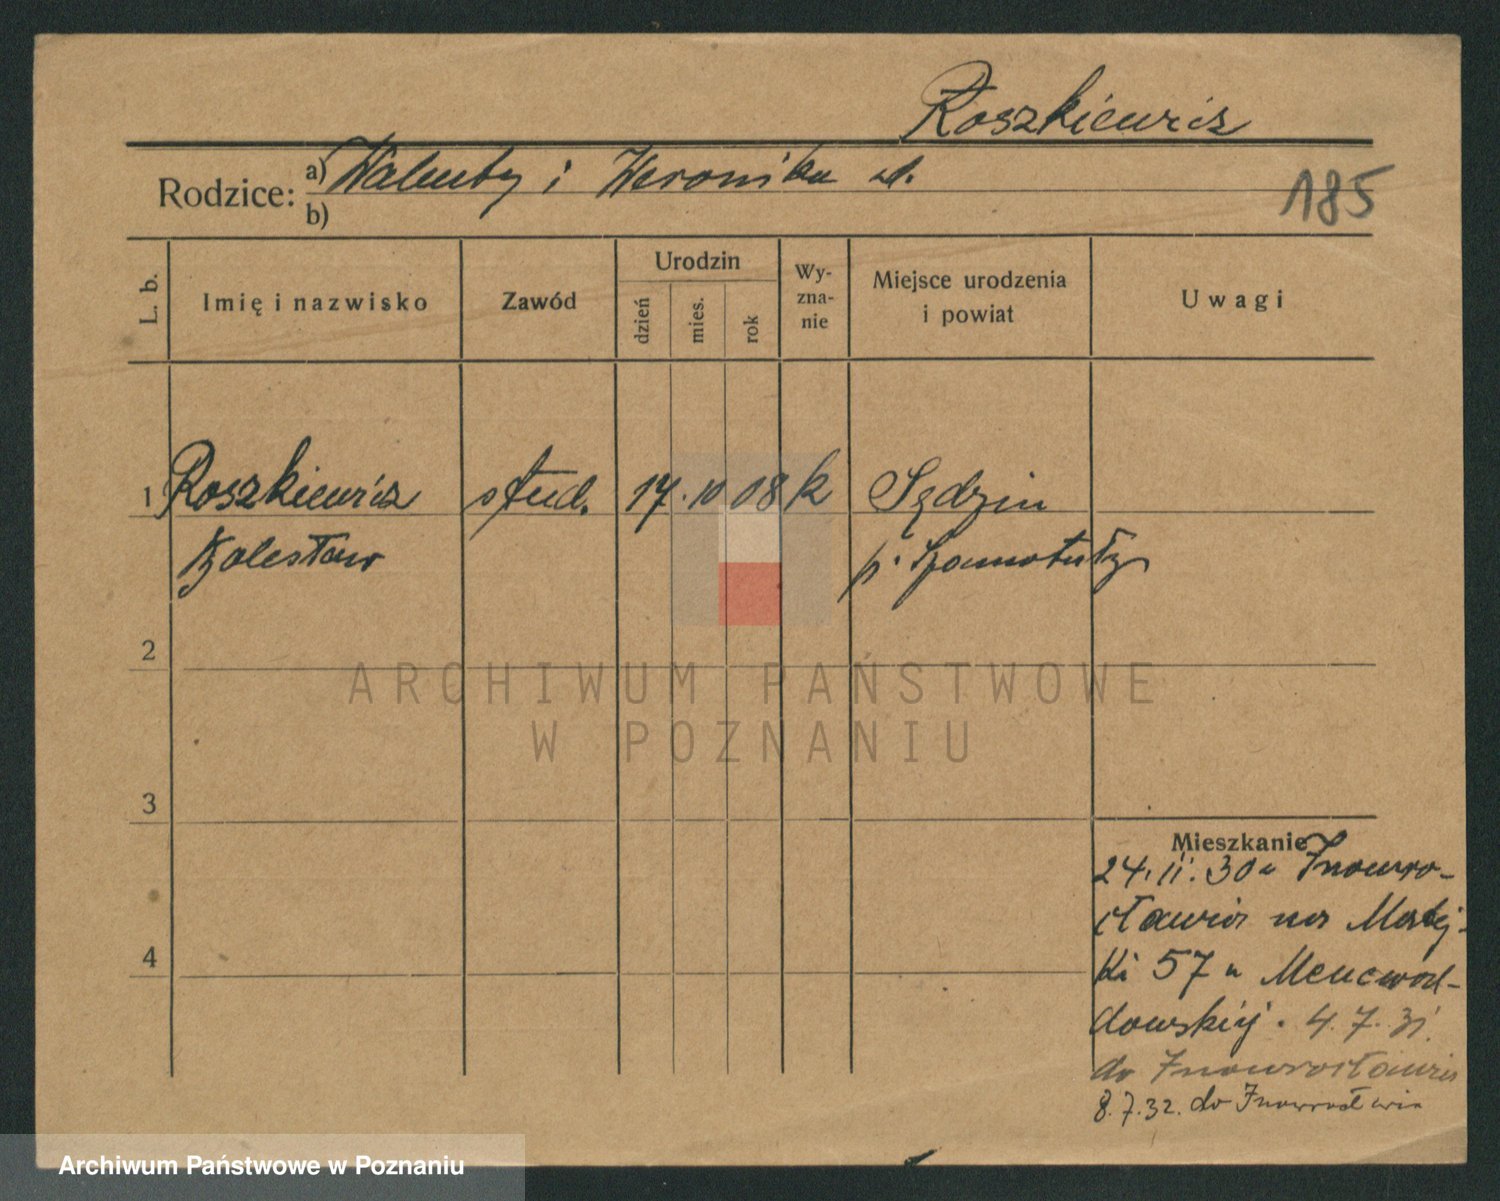 Roszkiewicz
Rodzice: a) Walenty i Weronika d.
b)
185
L. b.
Imię i nazwisko
Zawód
Urodzin
dzień
mies.
rok
Wy-
zna-
nie
Miejsce urodzenia
i powiat
Uwagi
1 Roszkiewicz stud. 17. 10 08 k Sędzin
Bolesław p. Szamotuły
2
3
4
Mieszkanie
24. 11. 30 z Inowro-
cławia na Matej-
ki 57 u
4. 7. 31.
do Inowrocławia
8.7.32. do Inowrocławia
ARCHIWUM PAŃSTWOWE
W POZNANIU
Archiwum Państwowe w Poznaniu